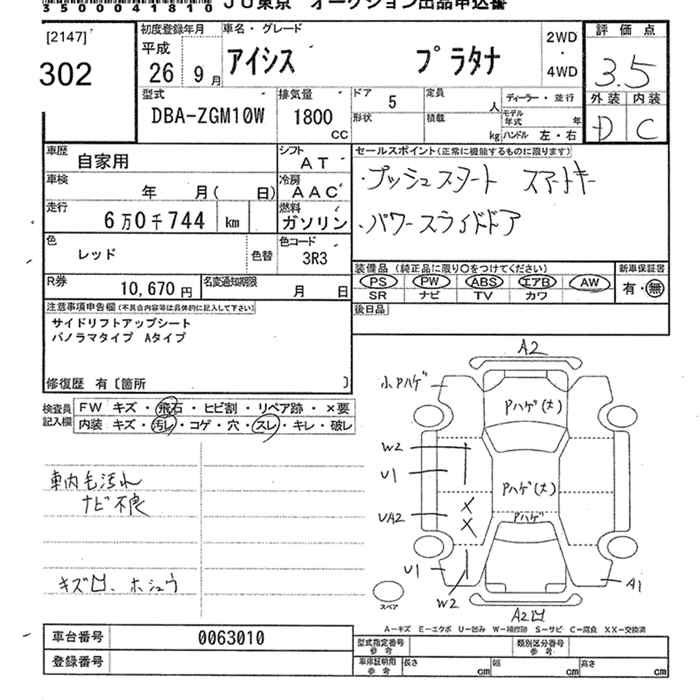 35000041810 JU東京 オークション出品申込書
[2147]
302
初度登録年月
平成
26年9月
車名・グレード
アイシス プラタナ
2WD
・
4WD
評価点
3.5
外装 内装
D C
型式
DBA-ZGM10W
排気量
1800
CC
ドア
5
定員
人
形状
積載
kg
ディーラー・並行
モデル年式
年
ハンドル 左・右
車歴
自家用
シフト
AT
車検
年 月( 日)
冷房
AAC
走行
6万0千744 km
燃料
ガソリン
色
レッド
色替
色コード
3R3
R券
10,670円
名変通知期限
月 日
セールスポイント(正常に機能するものに限ります)
・プッシュスタート スマートキー
・パワースライドドア
装備品(純正品に限り○をつけてください)
PS PW ABS エアB AW
SR ナビ TV カワ
新車保証書
有・無
後日品
注意事項申告欄(不具合内容等は具体的に記入して下さい)
サイドリフトアップシート
パノラマタイプ Aタイプ
修復歴 有〔箇所 〕
検査員記入欄
FW キズ・飛石・ヒビ割・リペア跡・×要
内装 キズ・汚レ・コゲ・穴・スレ・キレ・破レ
車内毛汚れ
ナビ不良
キズ凹、ホシュウ
A2
小Pハゲ
Pハゲ(大)
W2
U1
Pハゲ(大)
X
UA2
X
Pハゲ
U1
W2
A1
A2凹
スペア
A−キズ E−エクボ U−凹み W−補修跡 S−サビ C−腐食 XX−交換済
車台番号
0063010
登録番号
型式指定番号
参考
類別区分番号
参考
車庫証明用
参考
長さ cm
幅 cm
高さ cm